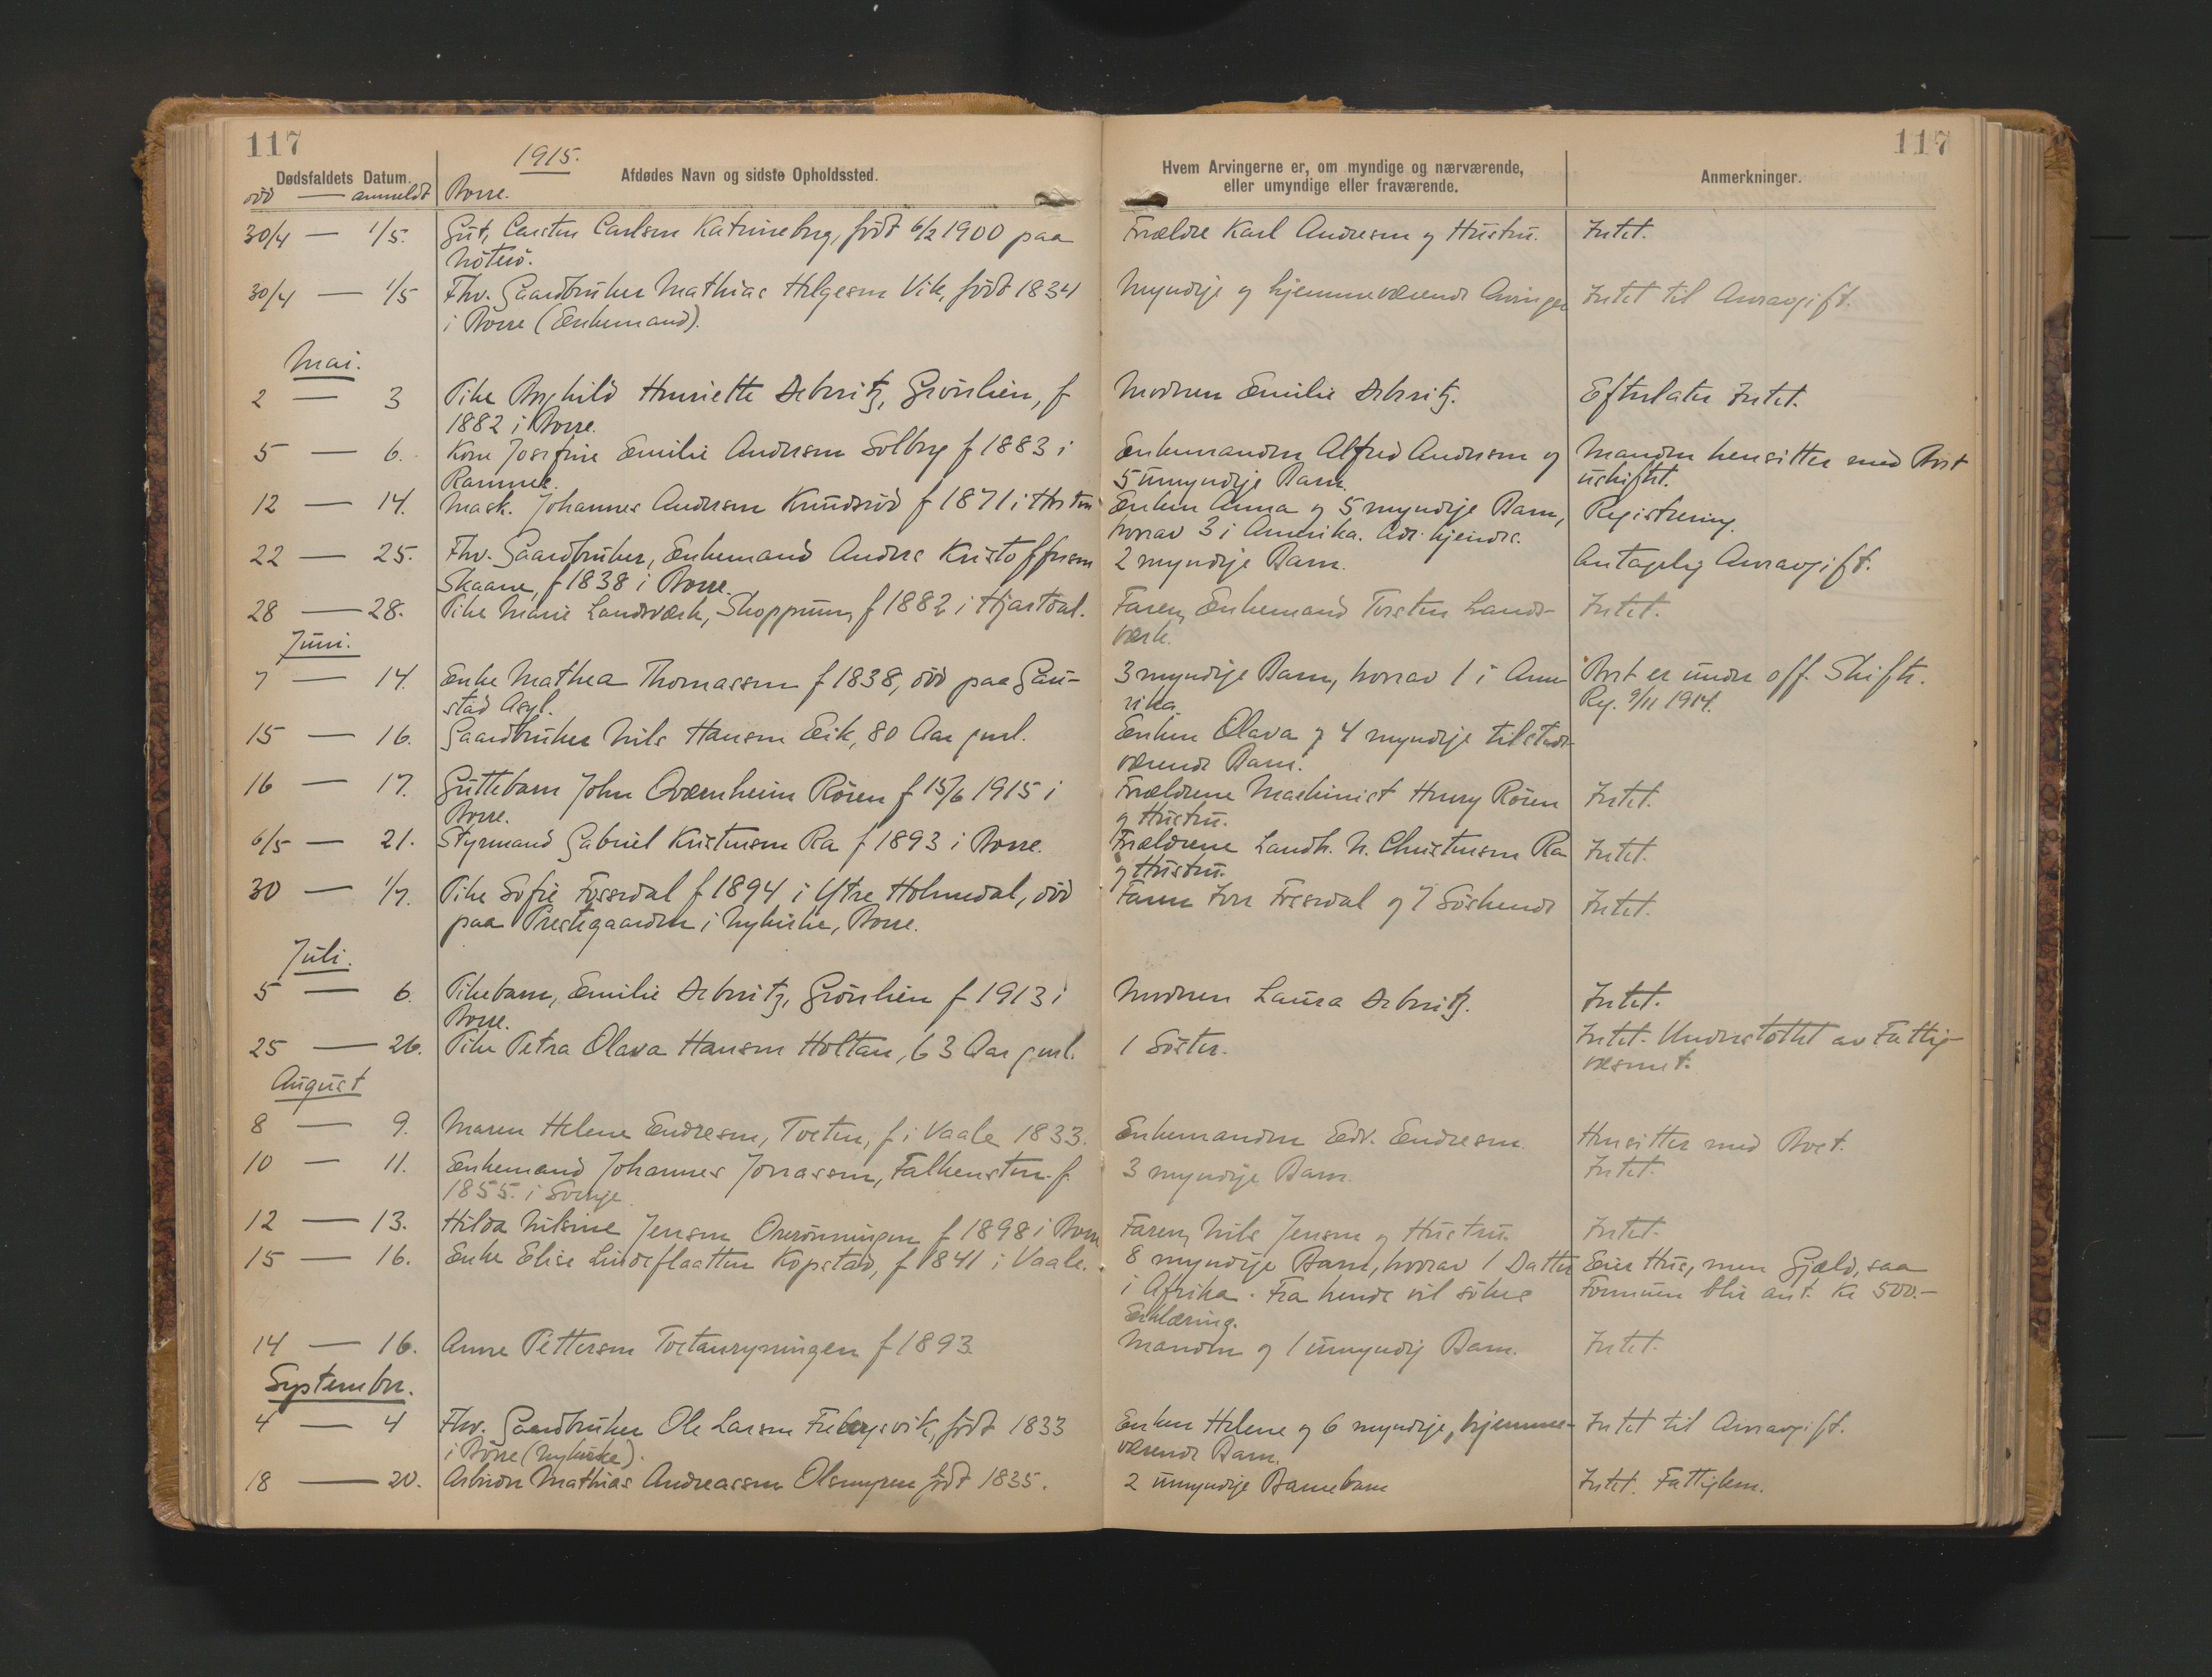 117
117
1915.
Dødsfaldets Datum.
Afdødes Navn og sidste Opholdssted.
Hvem Arvingerne er, om myndige og nærværende,
eller umyndige eller fraværende.
Anmerkninger.
död — anmeldt
Borre.
30/4 — 1/5.
Gut, Carsten Carlsen Katrineborg, född 6/2 1900 paa
Nöterö.
Forældre Karl Andresen og Hustru.
Intet.
30/4 — 1/5
Fhv. Gaardbruker Mathias Helgesen Vik, född 1834
i Borre (Enkemand).
Myndige og hjemmeværende Arvinger
Intet til Arveavgift.
Mai.
2 — 3
Pike Borghild Henriette Debesitz, Grönlien, f
1882 i Borre.
Moderen Emilie Debesitz.
Efterlater Intet.
5 — 6.
Kone Josefine Emilie Andersen Solberg f 1883 i
Ramnes.
Enkemanden Alfred Andersen og
5 umyndige Barn.
Manden hensitter med Boet
uskiftet.
12 — 14.
Mask. Johannes Andersen Knudsröd f 1871 i
Enken Anna og 5 myndige Barn,
hvorav 3 i Amerika. Adr. kjendes.
Registrering.
22 — 25.
Fhv. Gaardbruker, Enkemand Anders Kristoffersen
Skaane, f 1838 i Borre.
2 myndige Barn.
Antagelig Arveavgift.
28 — 28.
Pike Marie Landsværk, Skoppum, f 1882 i Hjartdal.
Faren, Enkemand Torsten Lands-
værk.
Intet.
Juni.
7 — 14.
Enke Mathea Thomassen f 1838, död paa Gau-
stad Asyl.
3 myndige Barn, hvorav 1 i Ame-
rika.
Boet er under off. Skifte.
Reg. 9/11 1914.
15 — 16.
Gaardbruker Nils Hansen Eik, 80 Aar gml.
Enken Olava og 4 myndige tilstede-
værende Barn.
16 — 17.
Guttebarn John Qværnheim Rören f 15/6 1915 i
Borre.
Forældrene Maskinist Henry Rören
og Hustru.
Intet.
6/5 — 21.
Styrmand Gabriel Kristensen Ra f 1893 i Borre.
Forældrene Landh. N. Christensen Ra
og Hustru.
Intet.
30 — 1/7.
Pike Sofie Fossedal f 1894 i Ytre Holmedal, död
paa Prestegaarden i Nykirke, Borre.
Faren Iver Fossedal og 7 Söskende
Intet.
Juli.
5 — 6.
Pikebarn, Emilie Debesitz, Grönlien f 1913 i
Borre.
Moderen Laura Debesitz.
Intet.
25 — 26.
Pike Petra Olava Hansen Holtan, 63 Aar gml.
1 Söster.
Intet. Understöttet av Fattig-
vesenet.
August
8 — 9.
Maren Helene Endresen, Tveten, f i Vaale 1833.
Enkemanden Edv. Endresen.
Hensitter med Boet.
10 — 11.
Enkemand Johannes Jonassen, Falkensten f.
1855. i Sverige.
3 myndige Barn.
Intet.
12 — 13.
Hilda Nilsine Jensen Overönningen f 1898 i Borre
Faren, Nils Jensen og Hustru.
Intet.
15 — 16.
Enke Elise Lindeflaatten Kopstad, f 1841 i Vaale.
8 myndige Barn, hvorav 1 Datter
i Afrika. Fra hende vil sökes
Erklæring.
Eier Hus, men Gjæld, saa
Formuen blir ant. Kr 500.-
14 — 16.
Anne Pettersen Toetanrynningen f 1893.
Manden og 1 umyndig Barn.
Intet.
September.
4 — 4
Fhv. Gaardbruker Ole Larsen Frebergsvik, född 1833
i Borre (Nykirke).
Enken Helene og 6 myndige, hjemme-
værende Barn.
Intet til Arveavgift.
18 — 20.
Arbeider Mathias Andreassen Olsmyren född 1835.
2 umyndige Barnebarn
Intet. Fattiglem.